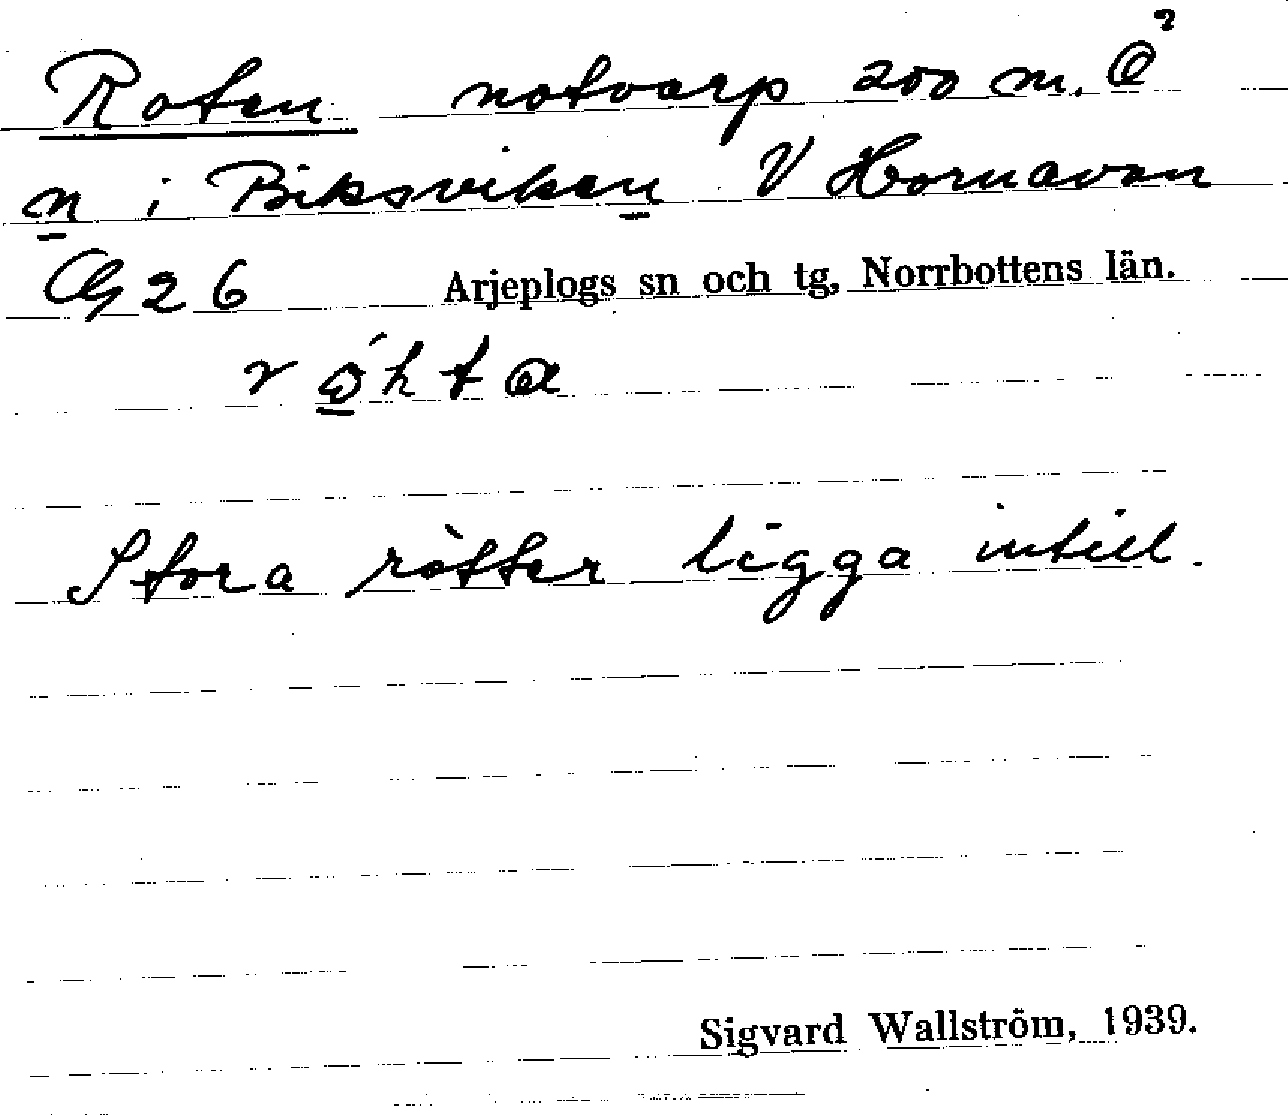 Roten notvarp 200 m. Ö
n i Biksviken V Hornavan
26 Arjeplogs sn och tg, Norrbottens län.
Stora rötter ligga intill.
Sigvard Wallström, 1939.